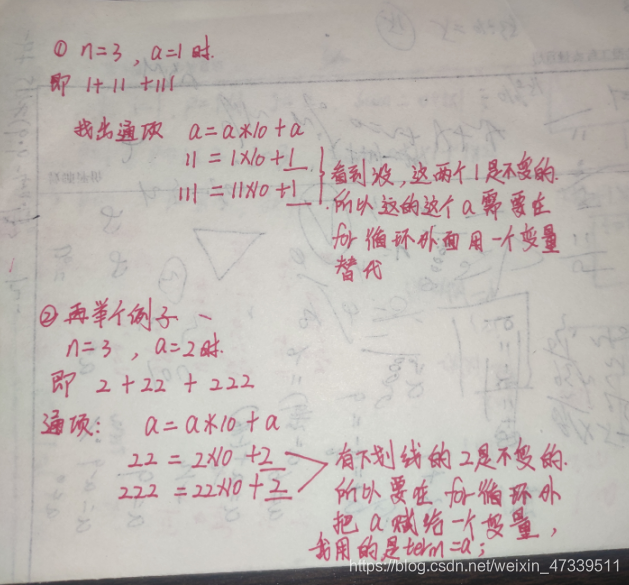 ① n=3, a=1时.
即 1+11+111
找出通项 a=a*10+a
11=1*10+1
111=11*10+1
看到没,这两个1是不变的.
所以这的这个a需要在
for循环外面用一个变量
替代
② 再举个例子
n=3, a=2时.
即 2+22+222
通项: a=a*10+a
22=2*10+2
222=22*10+2
有下划线的2是不变的.
所以要在for循环外
把a赋给一个变量,
我用的是term=a;
https://blog.csdn.net/weixin_47339511